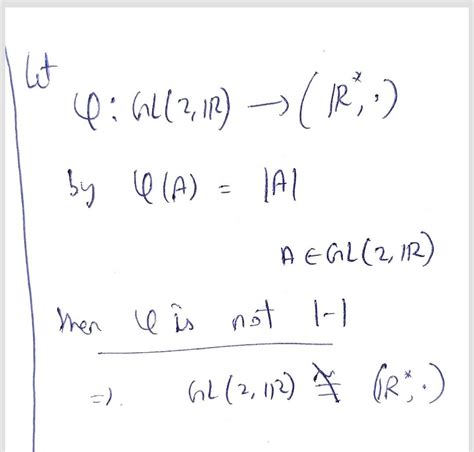 Let
φ: GL(2, IR) → (IR*, ·)
by φ(A) = |A|
A ∈ GL(2, IR)
then φ is not 1-1
=). GL(2, IR) ≇ (IR*, ·)